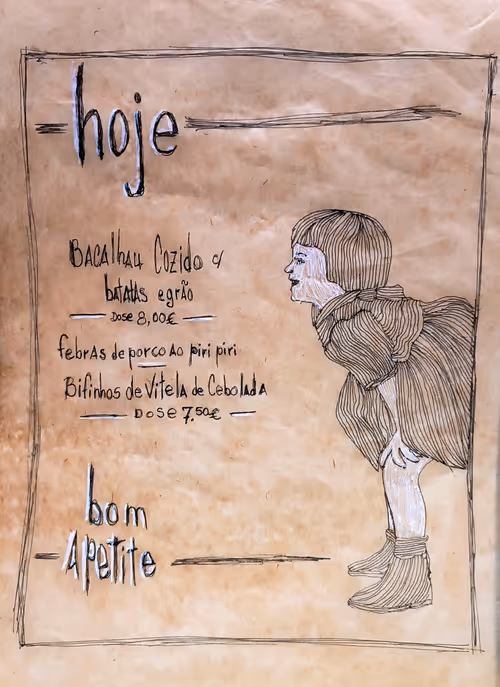 hoje
Bacalhau Cozido c/
batatas e grão
Dose 8,00€
febras de porco ao piri piri
Bifinhos de Vitela de Cebolada
Dose 7.50€
bom
Apetite